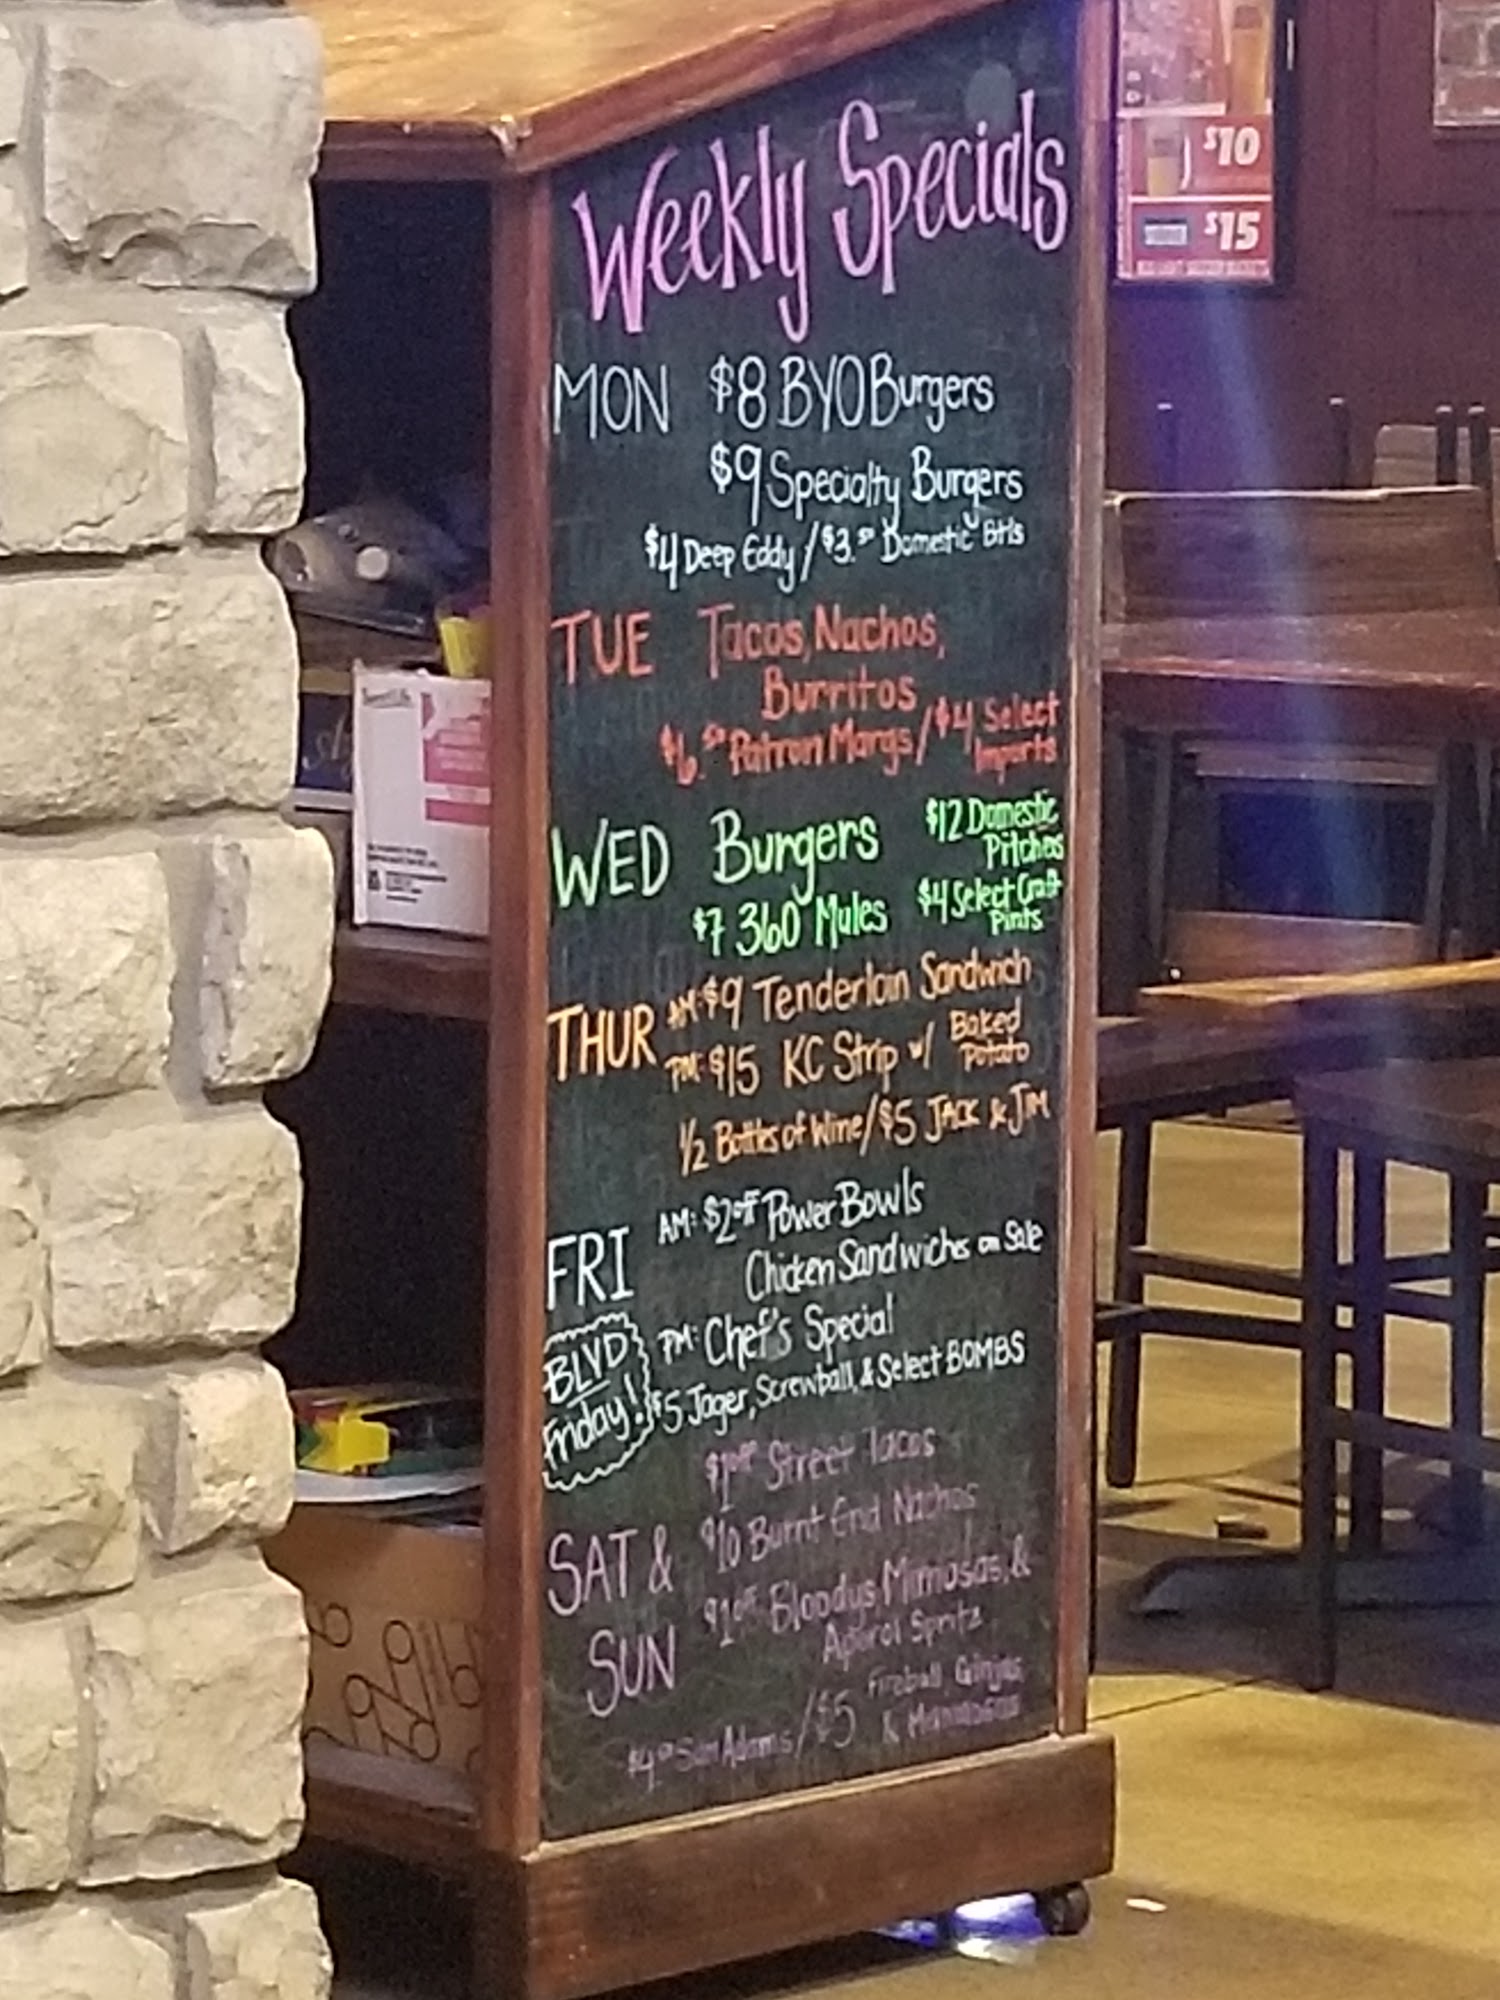 Weekly Specials
MON $8 BYO Burgers
$9 Specialty Burgers
$4 Deep Eddy / $3.50 Domestic Btls
TUE Tacos, Nachos,
Burritos
$6.50 Patron Margs / $4 Select
Imports
WED Burgers
$7 360 Mules
$12 Domestic
Pitches
$4 Select Craft
Pints
THUR AM: $9 Tenderloin Sandwich
PM: $15 KC Strip w/ Baked
Potato
1/2 Bottles of Wine / $5 JACK & JIM
FRI AM: $2 off Power Bowls
Chicken Sandwiches on Sale
PM: Chef's Special
$5 Jager, Screwball, & Select BOMBS
BLVD
Friday!
SAT &
SUN
$1 off Street Tacos
$10 Burnt End Nachos
$1 off Bloodys, Mimosas, &
Aperol Spritz
$4.50 Sam Adams / $5 Fireball,
&
$10
$15